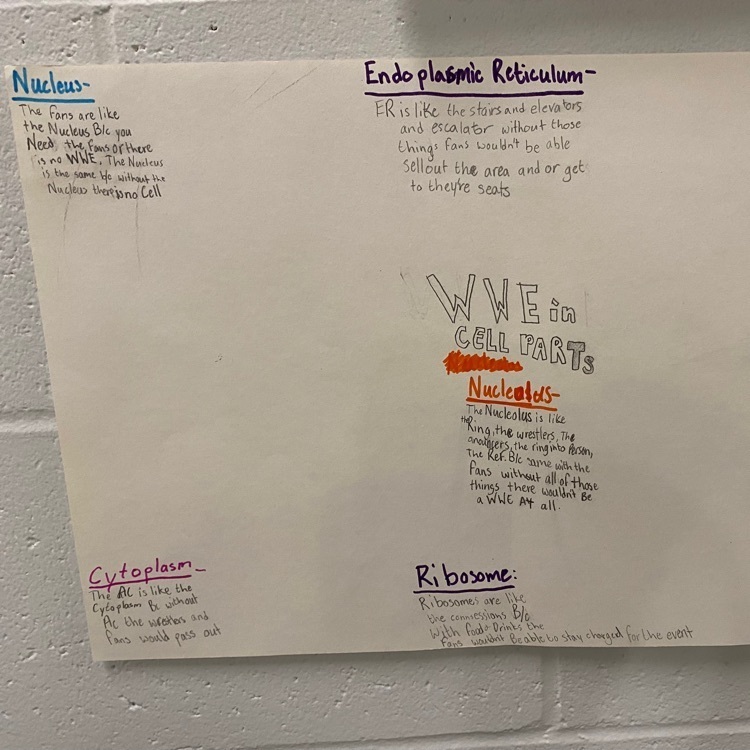 Nucleus-
The Fans are like
the Nucleus B/c you
Need the Fans or there
is no WWE. The Nucleus
is the same b/c without the
Nucleus there is no Cell
Endoplasmic Reticulum-
ER is like the stairs and elevators
and escalator without those
things fans wouldn't be able
sellout the area and or get
to they're seats
WWE in
CELL PARTS
Nucleolus-
The Nucleolus is like
the Ring, the wrestlers, The
the ring into Person,
The Ref. B/c same with the
fans without all of those
things there wouldn't Be
a WWE At all.
Cytoplasm-
The AC is like the
Cytoplasm Bc without
AC the wrestlers and
fans would pass out
Ribosome:
Ribosomes are like
the connsessions B/c
With food+Drinks the
Fans wouldn't Be able to stay charged for the event